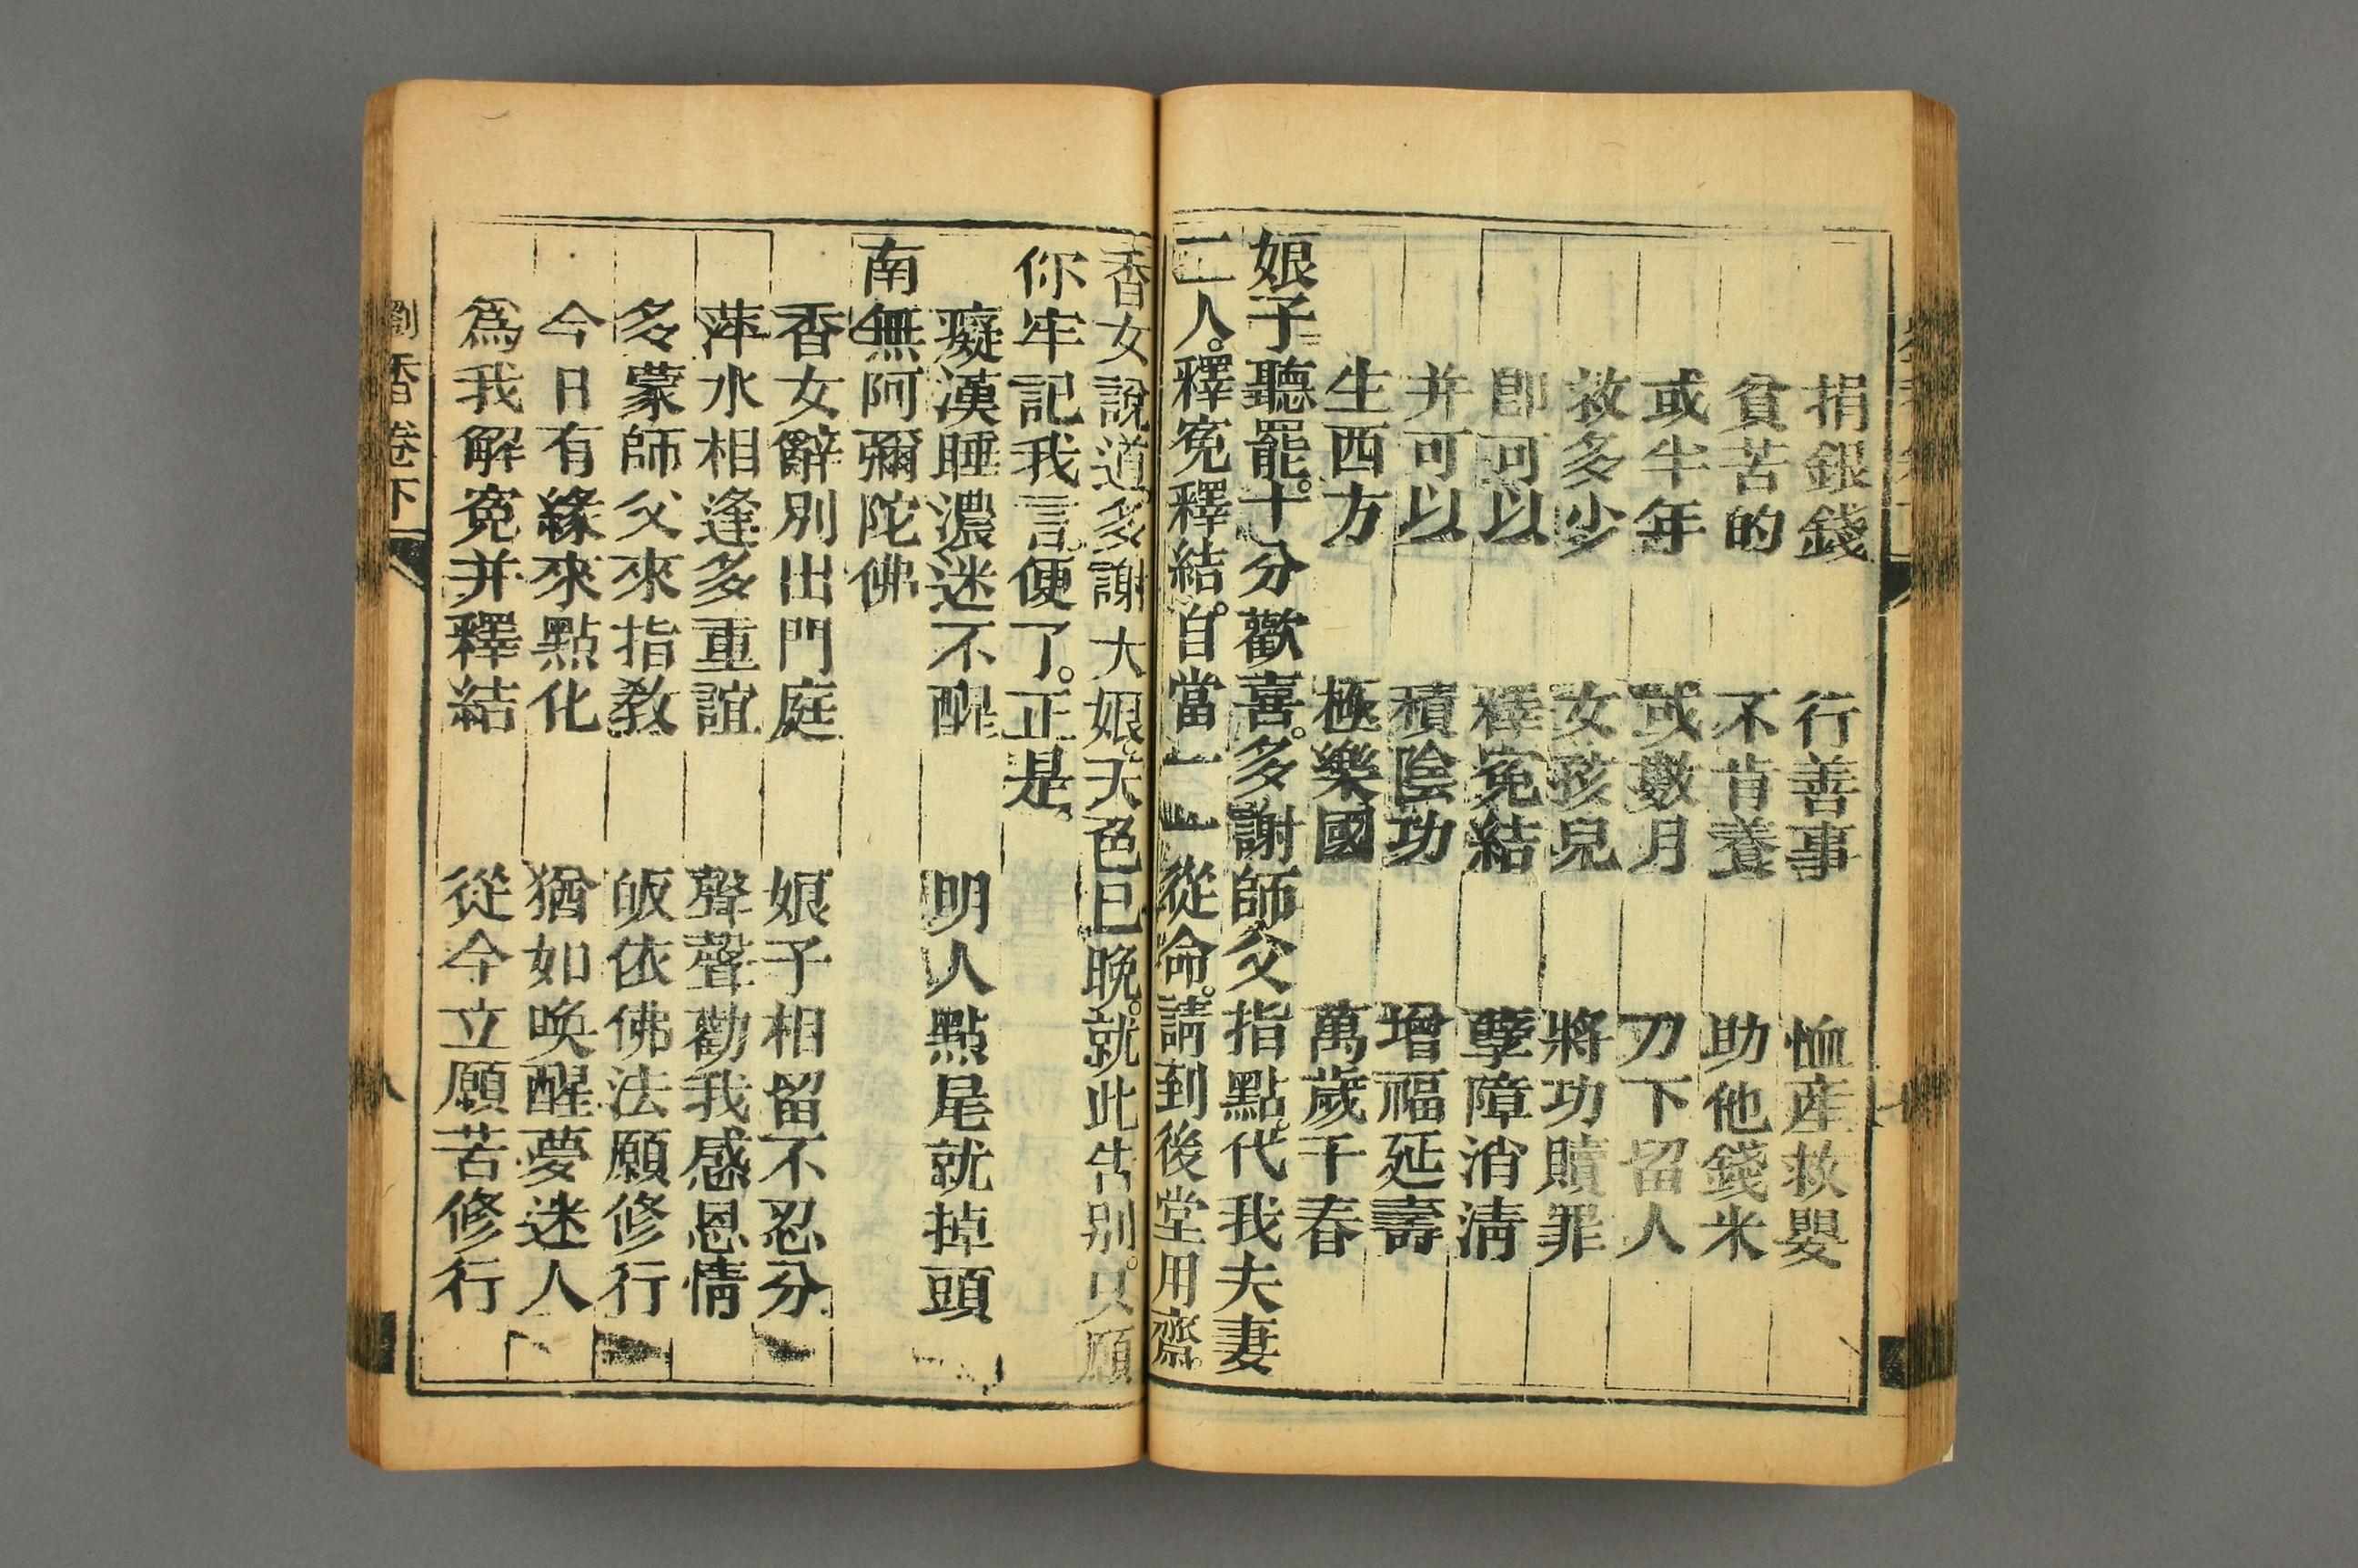 捐銀錢 行善事 恤産救嬰
貧苦的 不肯養 助他錢米
或半年 或數月 刀下留人
救多少 女孩兒 將功贖罪
即可以 釋寃結 孽障消清
并可以 積陰功 增福延壽
生西方 極樂國 萬歲千春
娘子聽罷。十分歡喜。多謝師父指點。代我夫妻
二人。釋寃釋結。自當一一從命。請到後堂用齋。
香女說道。多謝大娘。天色已晚。就此告別。只願
你牢記我言便了。正是。
癡漢睡濃迷不醒 明人點尾就掉頭
南無阿彌陀佛
香女辭別出門庭 娘子相留不忍分
萍水相逢多重誼 聲聲勸我感恩情
多蒙師父來指教 皈依佛法願修行
今日有緣來點化 猶如喚醒夢迷人
爲我解寃并釋結 從今立願苦修行
劉香卷下 八